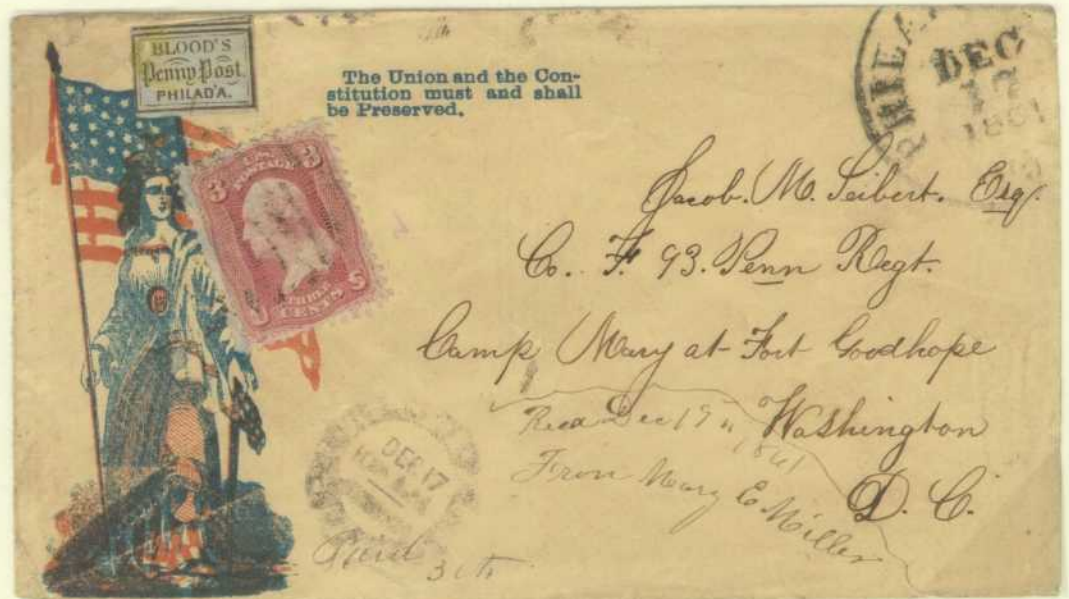 BLOOD'S
Penny Post
PHILAD'A.
The Union and the Con-
stitution must and shall
be Preserved.
PHILA
DEC
17
1861
3 3
THREE
CENTS
Jacob. M. Seibert. Esq.
Co. F. 93. Penn Regt.
Camp Mary at Fort Goodhope
Washington
D. C.
Recd Dec 19th, 1861
From Mary E Miller
DEC 17
Paid
3 cts